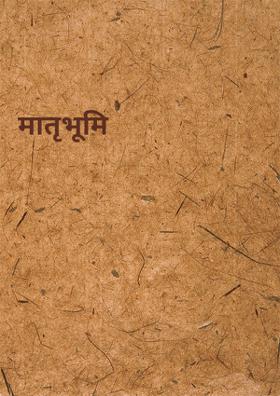 मातृभूमि